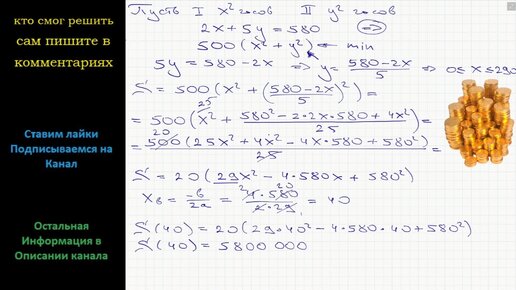 кто смог решить
сам пишите в
комментариях
Ставим лайки
Подписываемся на
Канал
Остальная
Информация в
Описании канала
Пусть I x² часов II y² часов
2x + 5y = 580 ⇔
500(x² + y²) ← min
5y = 580 - 2x ⇒ y = (580 - 2x)/5 ⇒ 0 ≤ x ≤ 290
S = 500(x² + ((580 - 2x)/5)²) =
= 500(25x² + (580² - 2·2x·580 + 4x²)/25) =
= 20 500(25x² + 4x² - 4x·580 + 580²)/25 =
S = 20(29x² - 4·580x + 580²)
xв = -b/2a = 4·580/2·29 = 40
S(40) = 20(29·40² - 4·580·40 + 580²)
S(40) = 5800 000